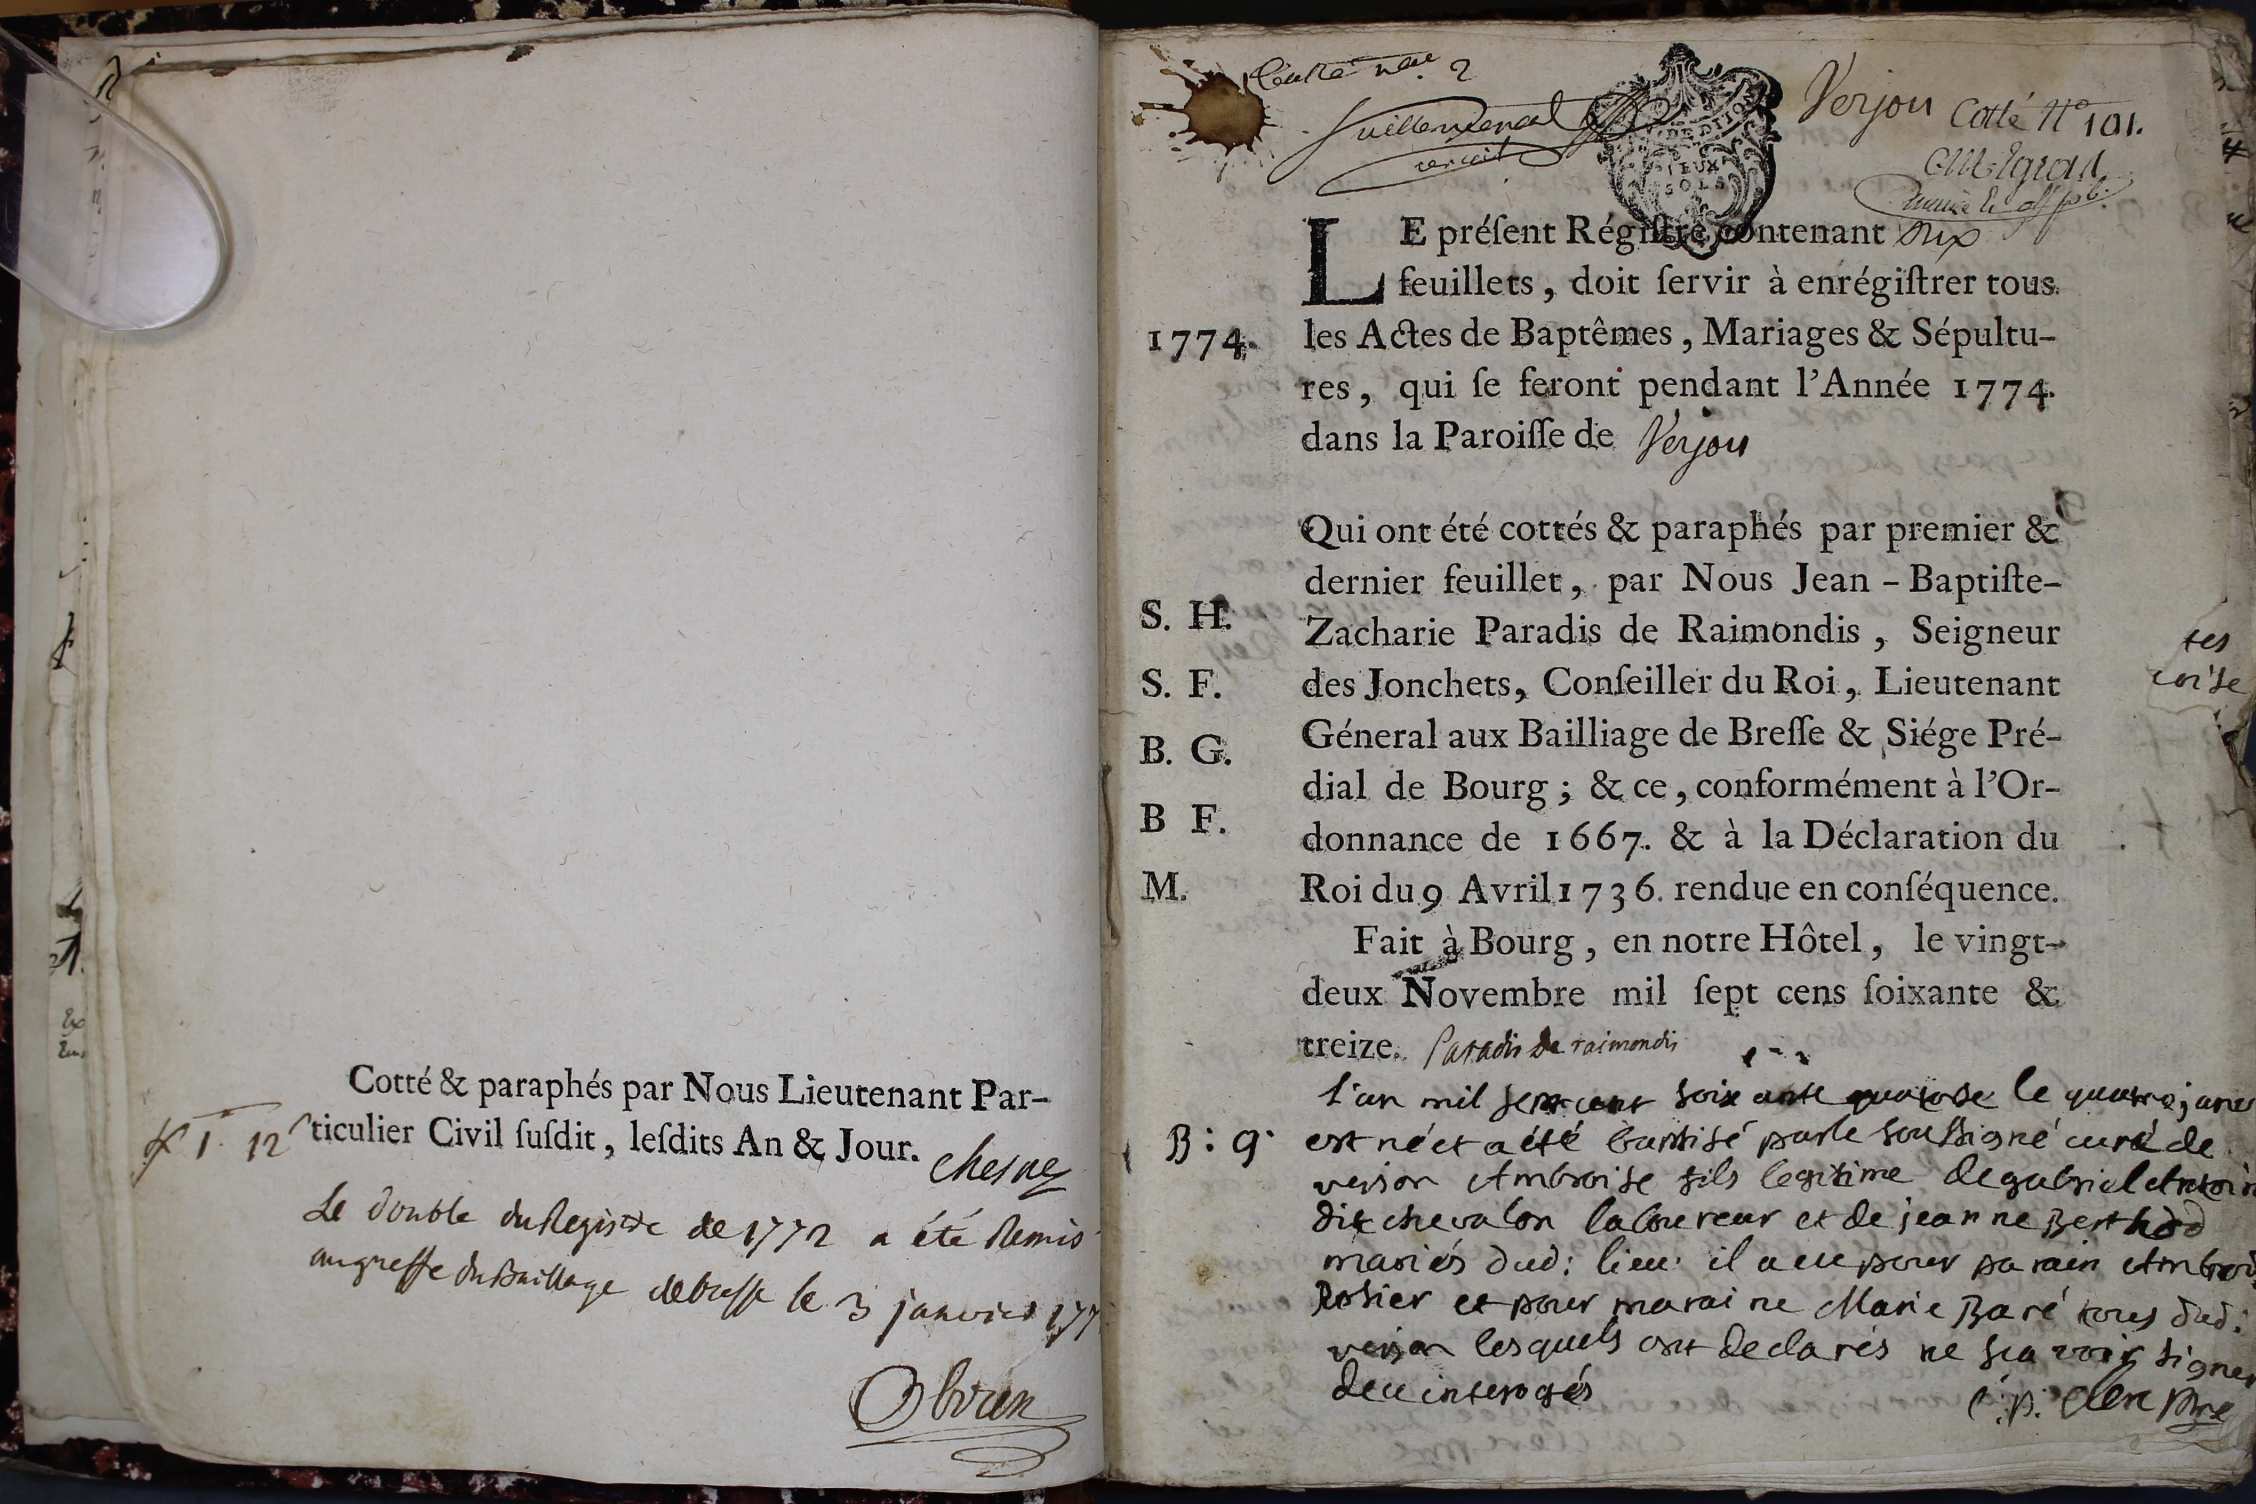 Cotté & paraphés par Nous Lieutenant Par-
ticulier Civil ſuſdit, leſdits An & Jour. chesne
Le double du Registre de 1772 a été Remis
au greffe du Baillage de bresse le 3 janvier 177
Verjon Cotté N° 101.
DIJON
DEUX
SOLS
LE préſent Régiſtre contenant Six
feuillets, doit ſervir à enrégiſtrer tous
1774. les Actes de Baptêmes, Mariages & Sépultu-
res, qui ſe feront pendant l'Année 1774.
dans la Paroiſſe de Verjon
Qui ont été cottés & paraphés par premier &
dernier feuillet, par Nous Jean-Baptiſte-
S. H. Zacharie Paradis de Raimondis, Seigneur
S. F. des Jonchets, Conſeiller du Roi, Lieutenant
B. G. Géneral aux Bailliage de Breſſe & Siége Pré-
dial de Bourg; & ce, conformément à l'Or-
B F. donnance de 1667. & à la Déclaration du
M. Roi du 9 Avril 1736. rendue en conſéquence.
Fait à Bourg, en notre Hôtel, le vingt-
deux Novembre mil ſept cens ſoixante &
treize. Paradis de raimondis
L'an mil sept cent soixante quatorse le quatre janvier
B: g. est né et a été baptisé par le soussigné curé de
verjon Ambroise fils legitime de gabriel Antoine
dit chevalon laboureur et de jeanne Berthod
mariés dud: lieu: il a eu pour parain Ambroi
Rosier et pour maraine Marie Baré tous dud:
verjon lesquels ont declarés ne sçavoir signer
de ce interogés
C. p. Clerc ptre